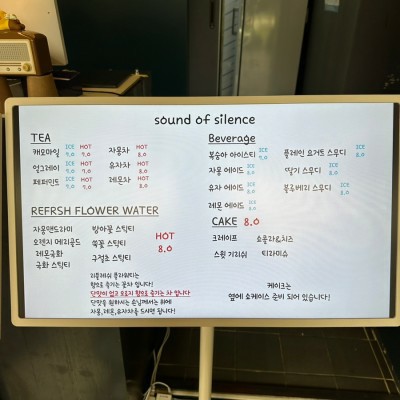 sound of silence
TEA
ICE HOT HOT
캐모마일 7.0 7.0 자몽차 8.0
ICE HOT HOT
얼그레이 7.0 7.0 유자차 8.0
ICE HOT HOT
페퍼민트 7.0 7.0 레몬차 8.0
Beverage
ICE ICE
복숭아 아이스티 7.0 플레인 요거트 스무디 8.0
ICE ICE
자몽 에이드 8.0 딸기 스무디 8.0
ICE ICE
유자 에이드 8.0 블루베리 스무디 8.0
ICE
레몬 에이드 8.0
REFRSH FLOWER WATER
자몽앤드라미 스틱티
오렌지 메리골드 쑥꽃 스틱티
레몬국화 구절초 스틱티
국화 스틱티
HOT
8.0
리플레쉬 플라워티는
향으로 즐기는 꽃차 입니다!
단맛이 없고 오로지 향으로 즐기는 차 입니다
단맛을 원하시는 손님께서는 위에
자몽,레몬,유자차를 드시면 됩니다!
CAKE 8.0
크레이프 쇼콜라&치즈
스윗 기리쉬 티라미슈
케이크는
옆에 쇼케이스 준비 되어 있습니다!